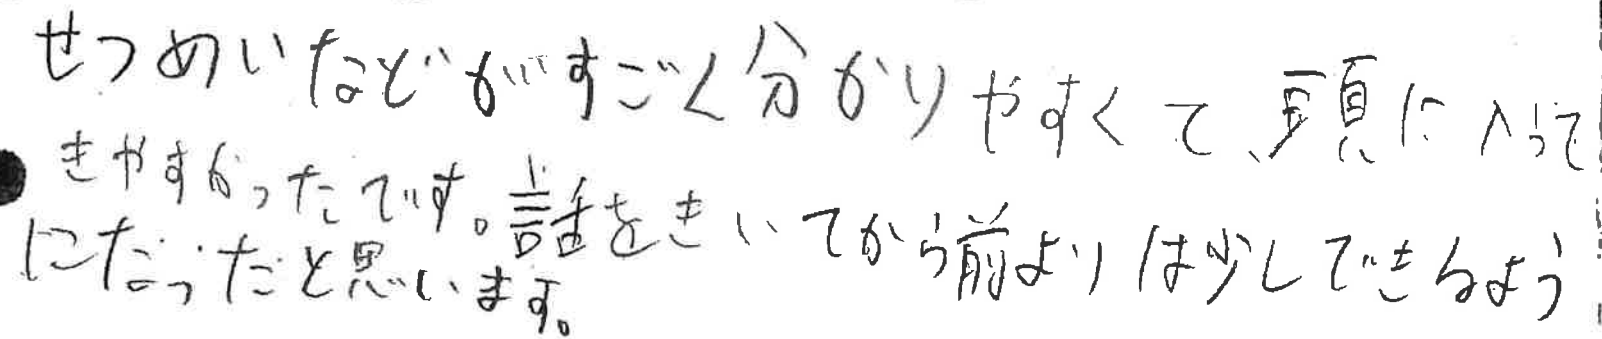 せつめいなどがすごく分かりやすくて、頭に入って
きやすかったです。話をきいてから前よりは少しできるよう
になったと思います。